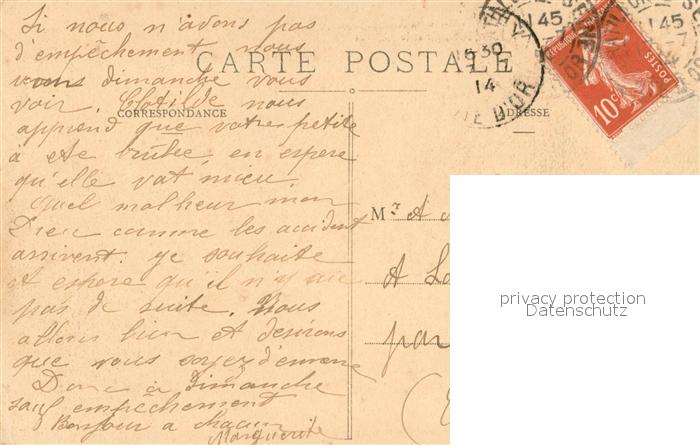 Si nous n'avons pas
d'empêchement nous
dimanche vous
voir. Clotilde nous
apprend que votre petite
a été brûlée, en espere
qu'elle vat mieu,
quel malheur mon
Dieu comme les accident
arrivent. je souhaite
et espere qu'il n'y aie
pas de suite. Nous
allons bien et desirons
que vous soyez d'emme
Donc à Dimanche
sauf empêchement
Bonjour a chacun
Marguerite
CARTE POSTALE
CORRESPONDANCE
ADRESSE
15 30
14
E D'OR
1145
1145
POSTES
10c
Mr A
A Lo
par
(
privacy protection
Datenschutz